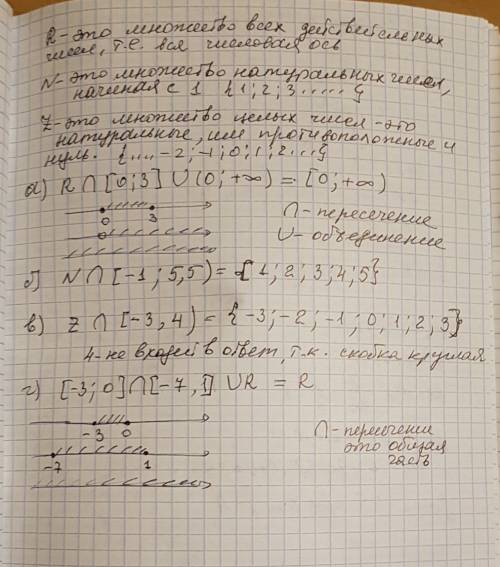 R-это множество всех действительных
чисел, т.е. вся числовая ось
N-это множество натуральных чисел,
начиная с 1 {1; 2; 3.....}
Z-это множество целых чисел-это
натуральные, им противоположные и
нуль. {....-2; -1; 0; 1; 2...}
а) R ∩ [0; 3] ∪ (0; +∞) = [0; +∞)
0 3
∩-пересечение
0
∪-объединение
б) N ∩ [-1; 5,5) = {1; 2; 3; 4; 5}
в) Z ∩ [-3, 4) = {-3; -2; -1; 0; 1; 2; 3}
4-не входит в ответ, т.к. скобка круглая
г) [-3; 0] ∩ [-7, 1] ∪ R = R
-3 0
∩-пересечение
это общая
часть
-7 1